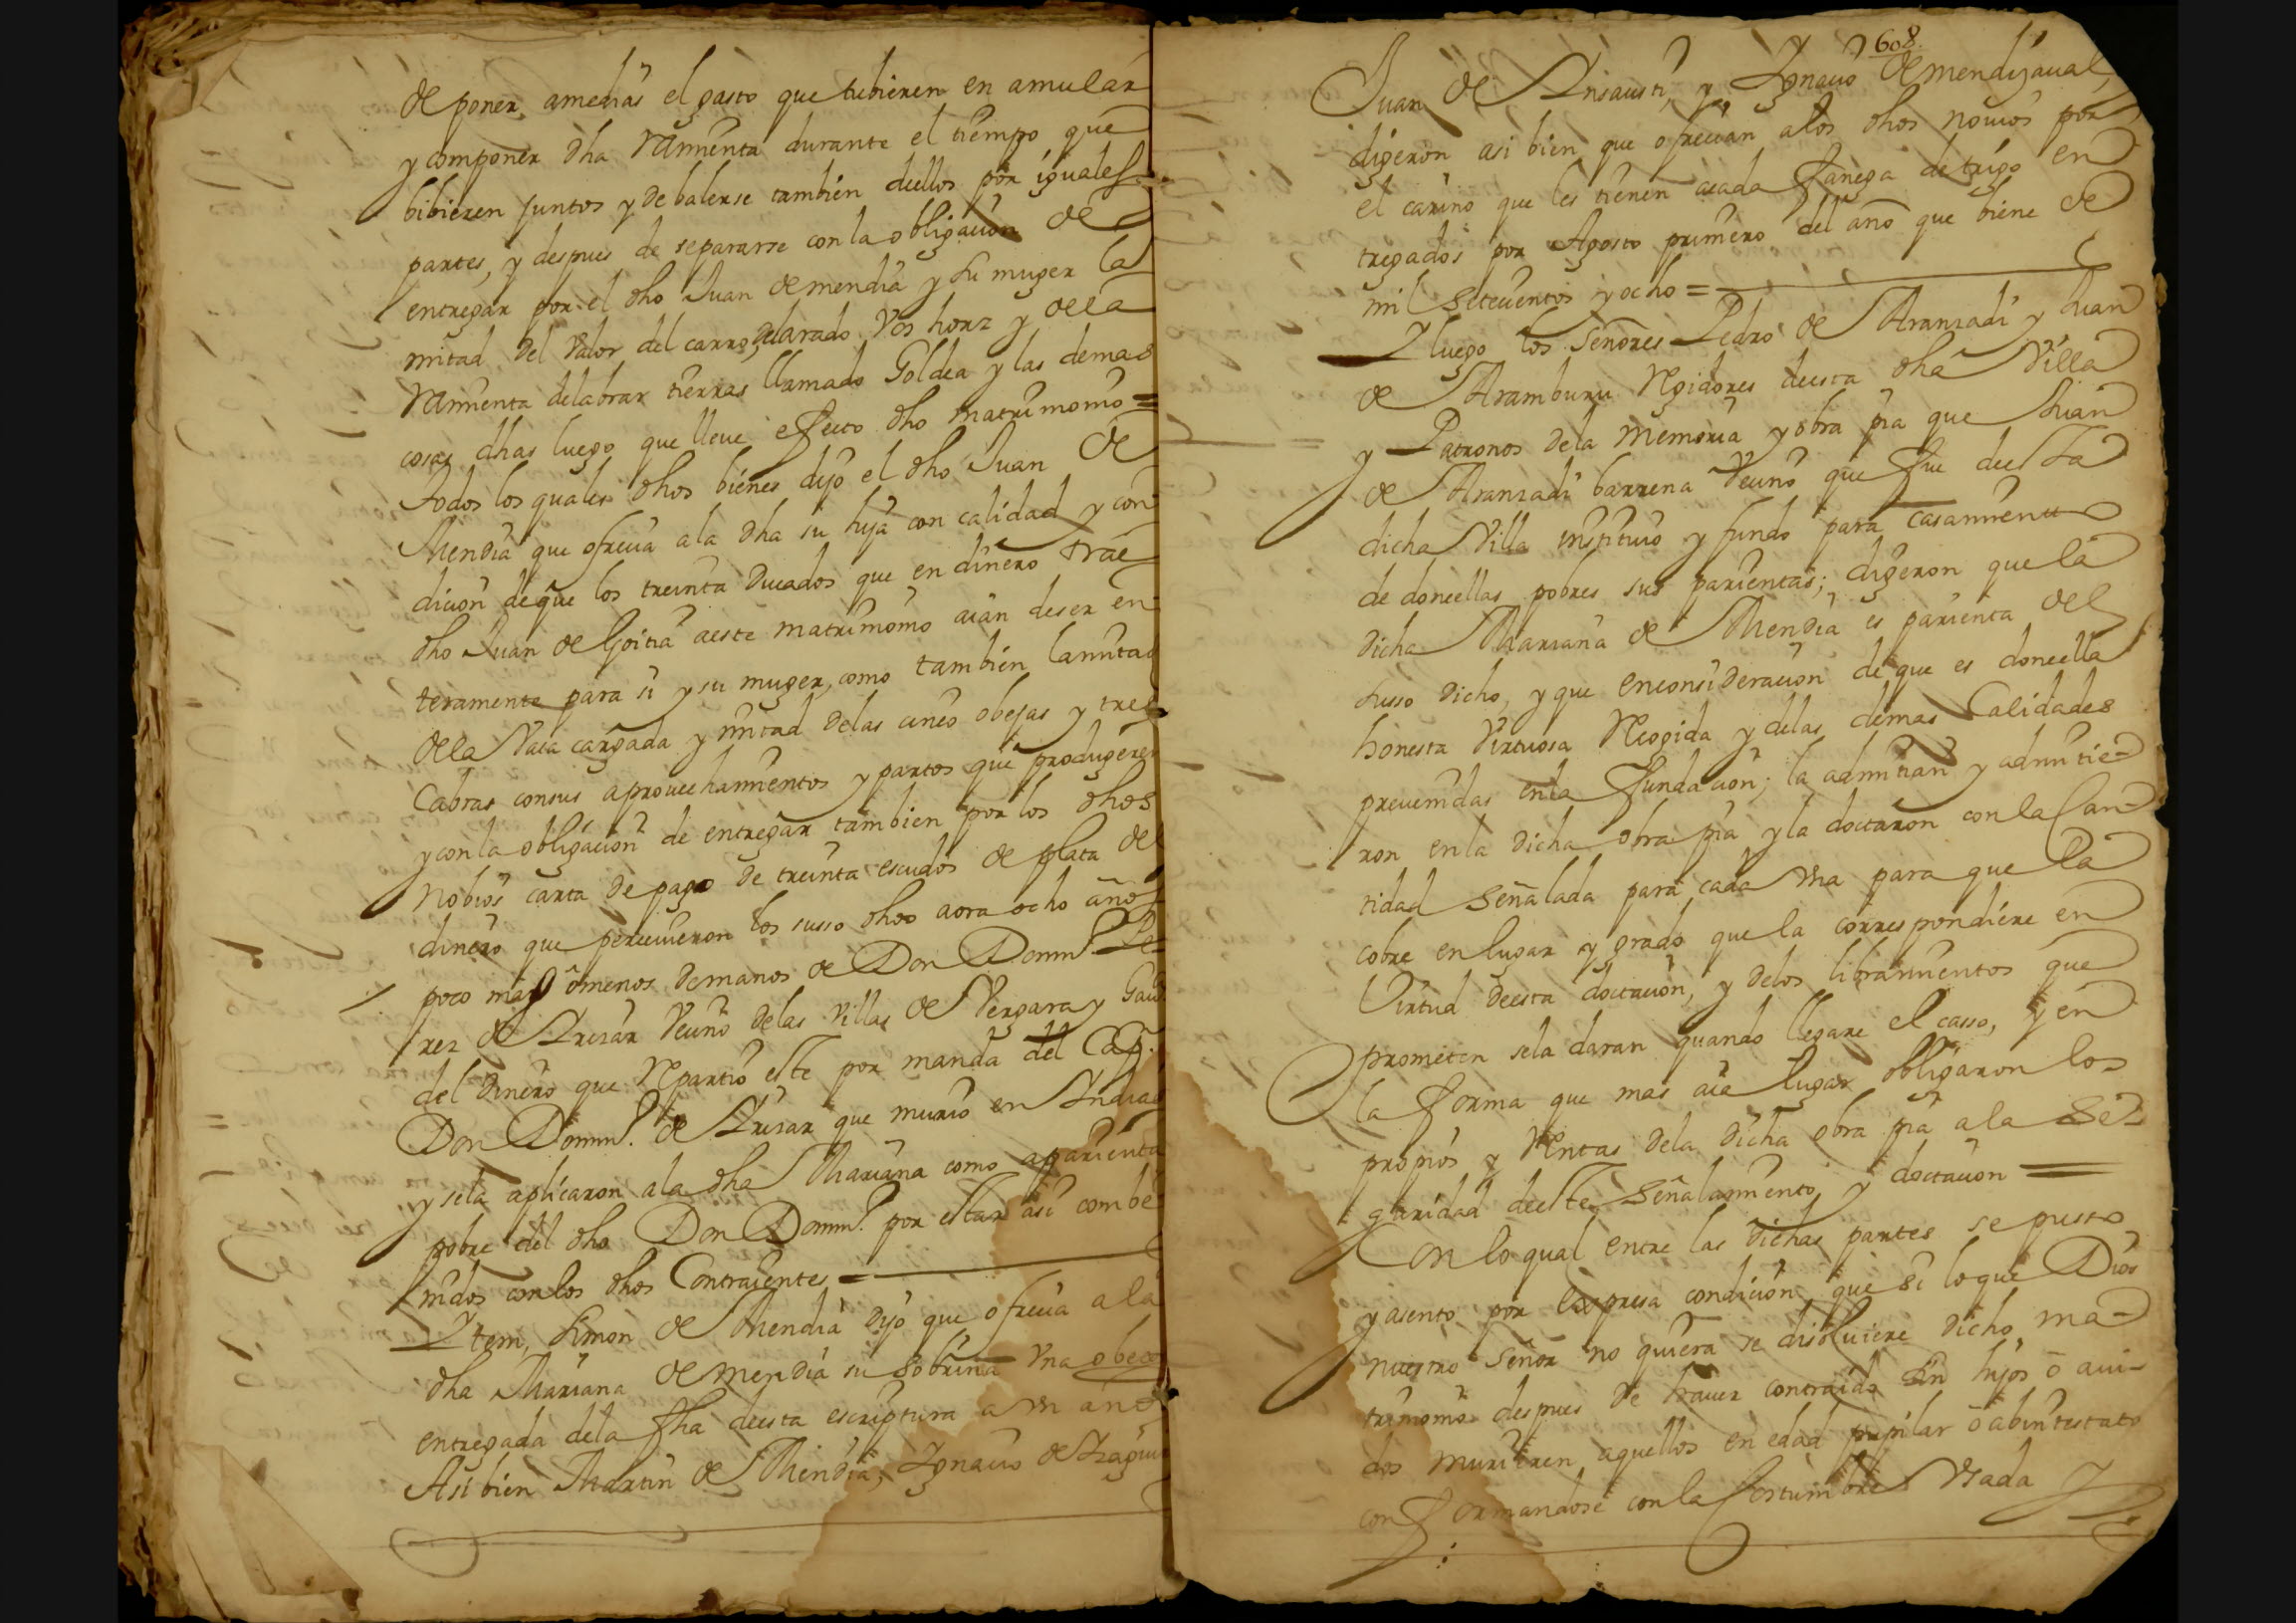 de poner, amedias el gasto que tubieren en amular
y componer dha Ramienta durante el tiempo que
bibieren juntos y de balerse tambien deellos por iguales
partes, y despues de separarse con la obligacion de
entregar por el dho Juan de mendia y su muger la
mitad del valor del carro, delarado, Vos horz y della
Ramienta delabrar tierras llamado Goldea y las demas
cosas dhas luego que lleve effecto dho matrimonio =
todos los quales dhos bienes dijo el dho Juan de
Mendia que ofrecia ala dha su hija con calidad y con
dicion de que los treinta Ducados que en dinero trae
dho Juan de Goitia aeste matrimonio aian deser en
teramente para si y su muger, como tambien lamitad
della Vaca cargada y mitad delas cinco obejas y tres
Cabras consus aprovechamientos y partos que produgeren
y con la obligacion de entregar tambien por los dhos
Nobios carta de pago de treinta escudos de plata de
dinero que percivieron los susso dhos aora ocho años
poco mas ômenos demanos de Don Domin.º Pe
rez de Irizar Vecino delas Villas de Vergara y
del dinero que Repartio este por manda del Cap.
Don Domin.º de Irizar que murio en Indias
y sela aplicaron ala dha Mariana como aparienta
pobre del dho Don Domin.º por estar asi combe
nidos con los dhos Contraientes =
Item, Simon de Mendia dijo que ofrecia a la
dha Mariana de mendia su sobrina Vna obeja
entregada dela fha deesta escriptura a vn año
Asi bien Martin de Mendia, Ignacio de
608.
Juan de Insausti, y Ignacio de mendizaval,
digeron asi bien que ofrecian alos dhos novios por
el cariño que les tienen acada fanega de trigo en
tregados por Agosto primero del año que biene de
mil setecientos y ocho =
I luego los Señores Pedro de Aranzadi y Juan
de Aramburu Regidores deesta dha Villa
y Patronos dela Memoria y obra pia que Juan
de Aranzadi barrena Vecino que fue deesta
dicha Villa instituio y fundo para casamiento
de doncellas pobres sus parientas; digeron que la
dicha Mariana de Mendia es parienta del
susso dicho, y que enconsideracion de que es doncella
honesta Virtuosa Recogida y delas demas Calidades
prevenidas enla fundacion; la admitian y admitie-
ron enla dicha obra pia y la doctaron con la Can-
tidad señalada para cada vna para que la
cobre en lugar y grado que la correspondiere en
Virtud deesta doctacion, y delos libramientos que
prometen sela daran quando llegare el casso, y en
la forma que mas aia lugar obligaron los
propios y Rentas dela dicha obra pia a la se-
guridad deeste señalamiento y doctacion =
Con lo qual entre las dichas partes se puso
y asento por expresa condicion que si loque Dios
nuestro Señor no quiera se disolviere dicho ma-
trimonio despues de haver contraido sin hijos ô avi-
dos murieren aquellos en edad pupilar ô abintestato
conformandose con la costumbre Vsada y